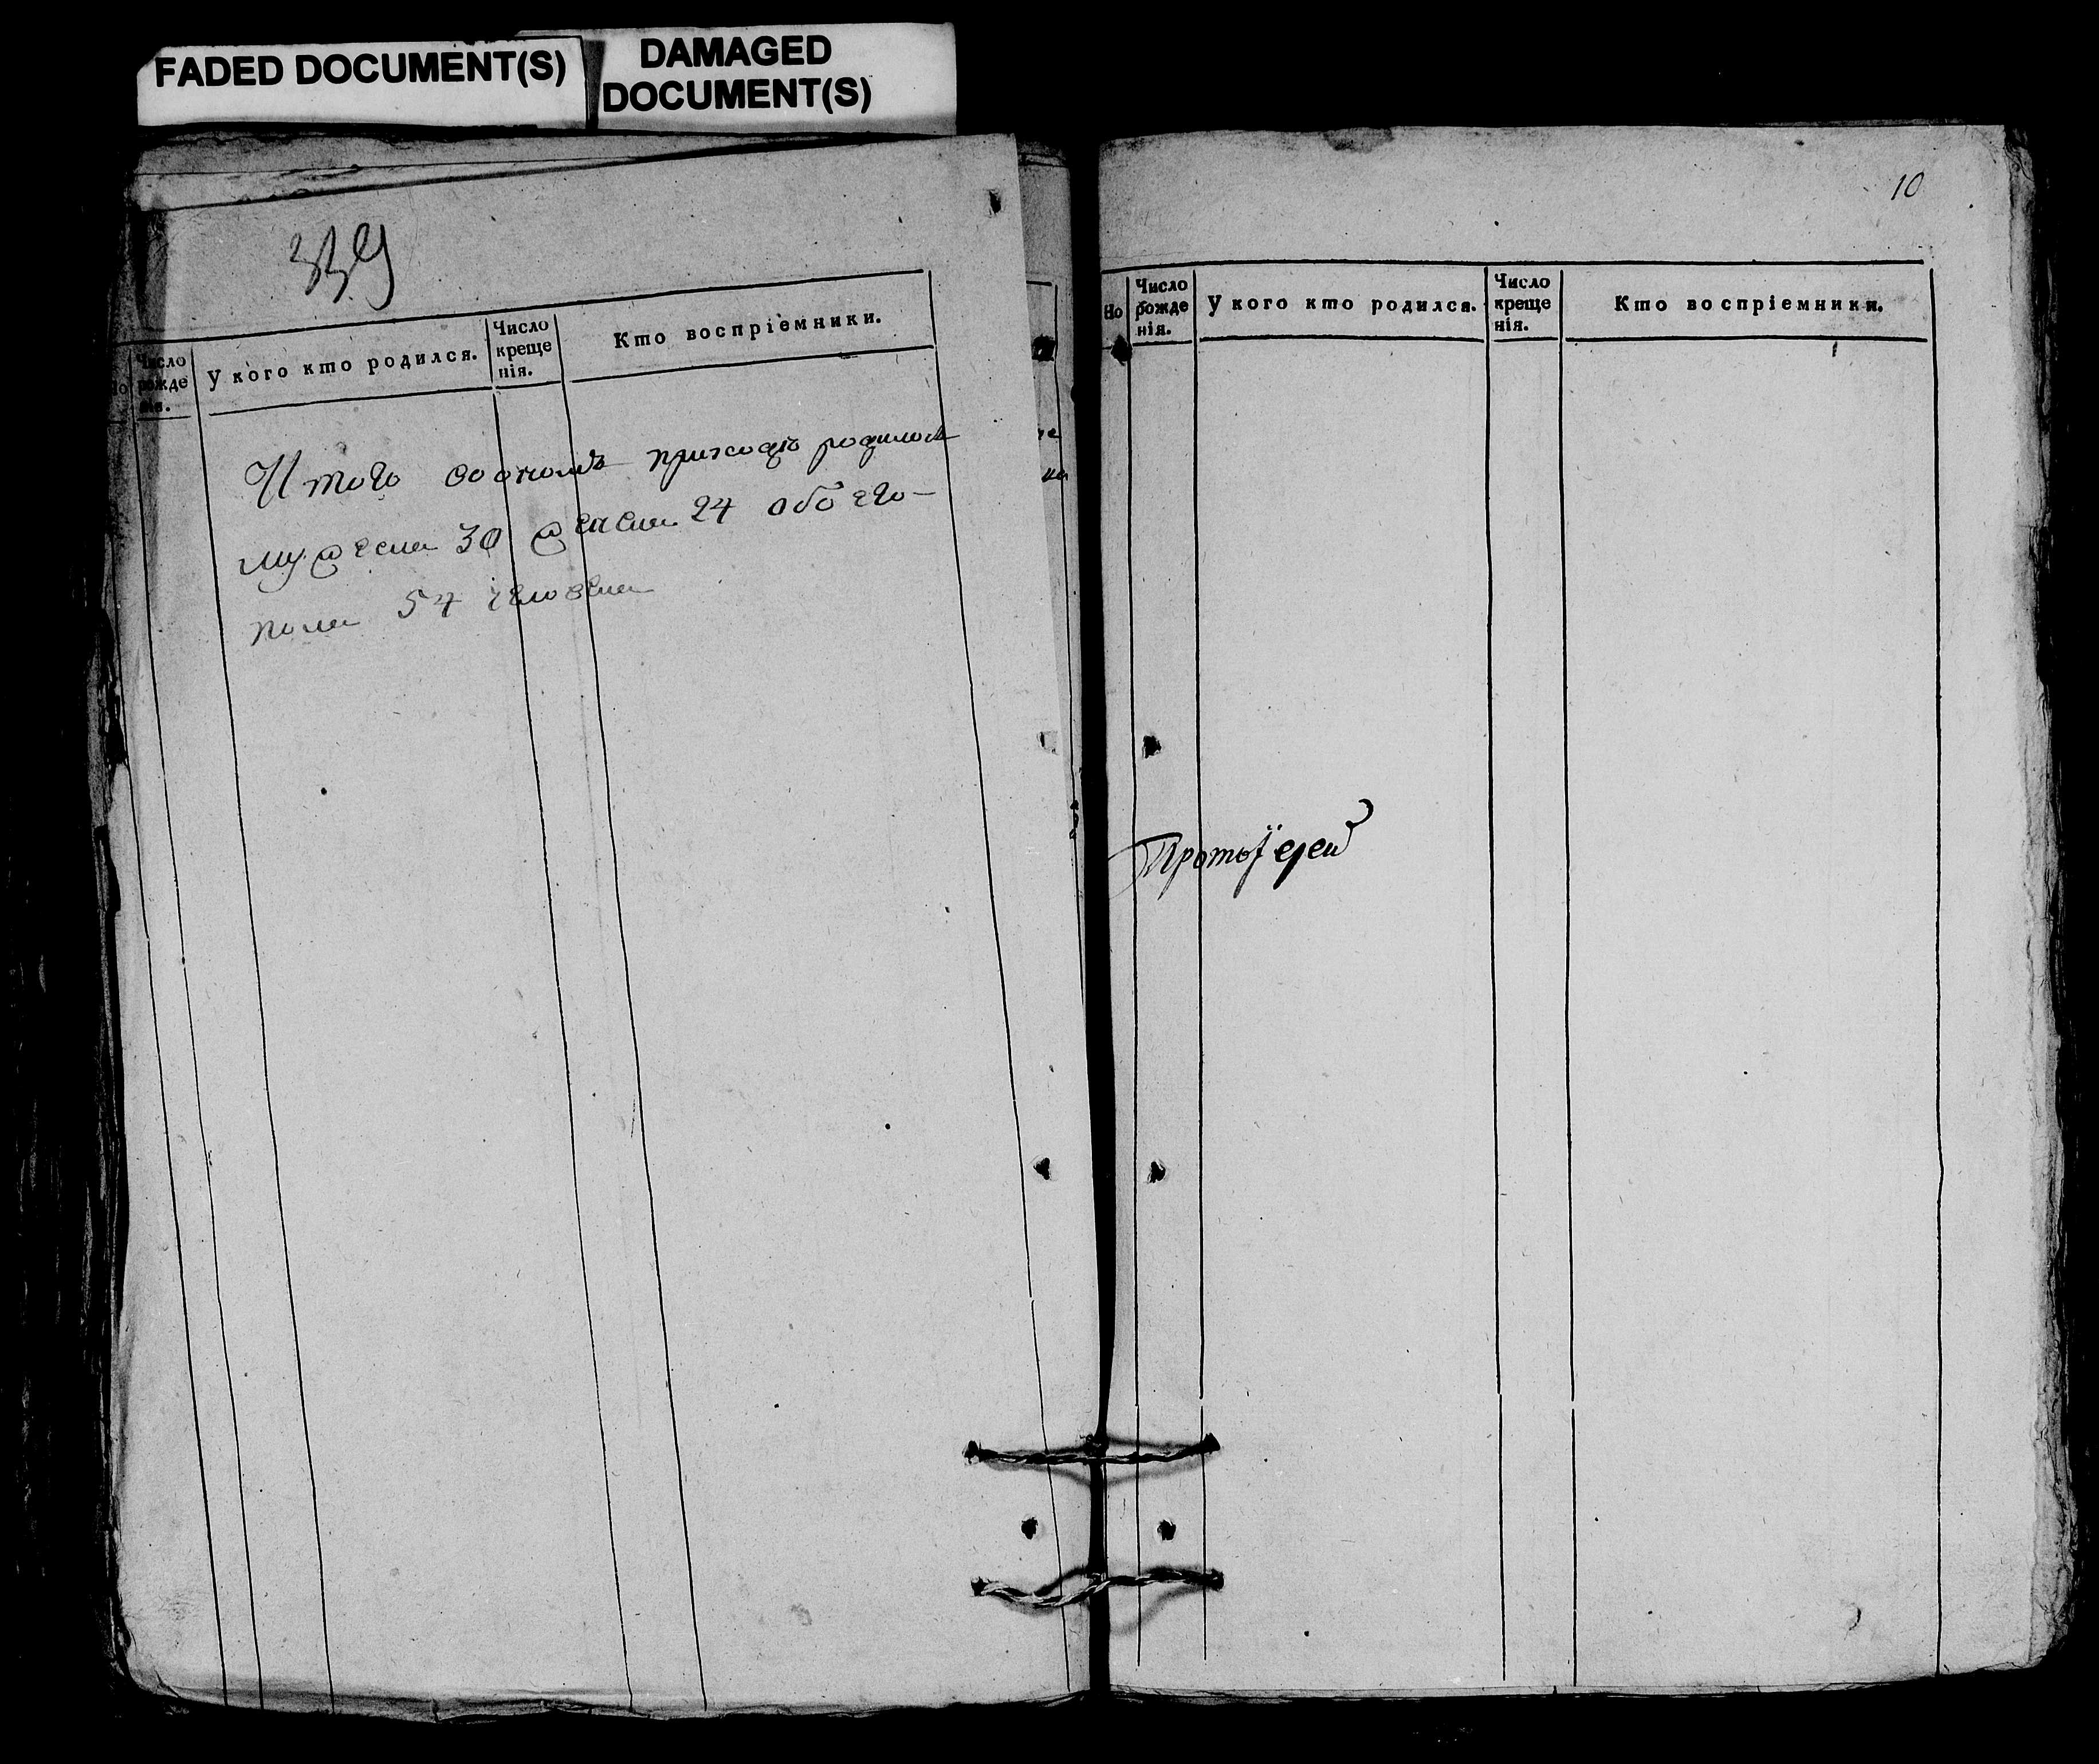 FADED DOCUMENT(S)
DAMAGED
DOCUMENT(S)
339
Но
Число
рожде
нія.
У кого кто родился.
Число
креще
нія.
Кто воспріемники.
Итого приходѣ родилось
мужеска 30 женска 24 обоего
пола 54 человека
10
Но
Число
рожде
нія.
У кого кто родился.
Число
креще
нія.
Кто воспріемники.
Протоіерей